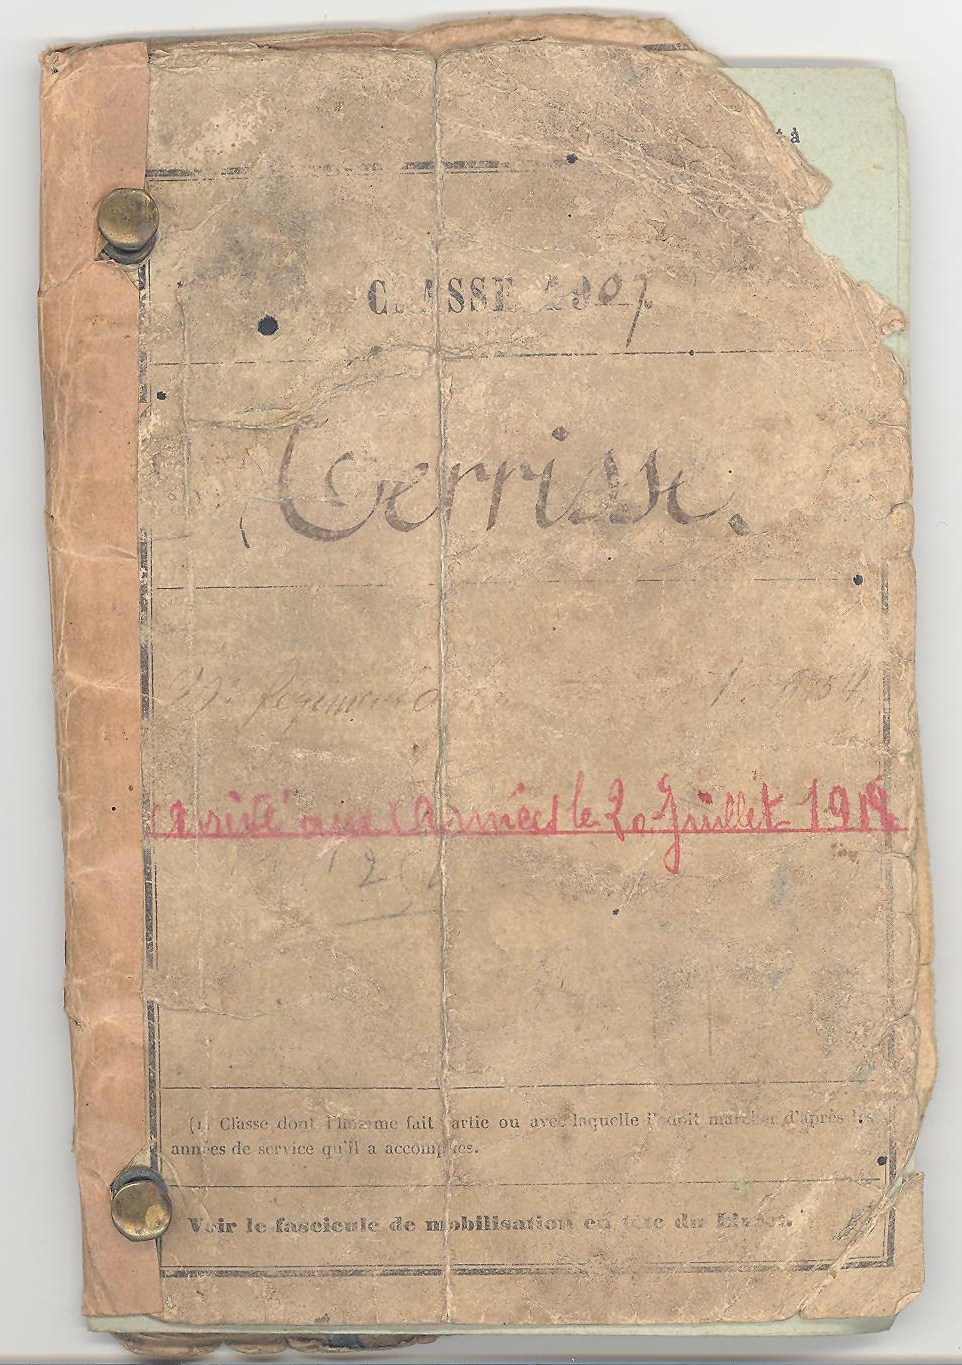 à
CLASSE 1907
Gerrisse.
Régiment
arrivé aux Armées le 20 Juillet 1917
125
(1) Classe dont l'homme fait partie ou avec laquelle il doit marcher d'après les
années de service qu'il a accomplies.
Voir le fascicule de mobilisation en tête du Livret.